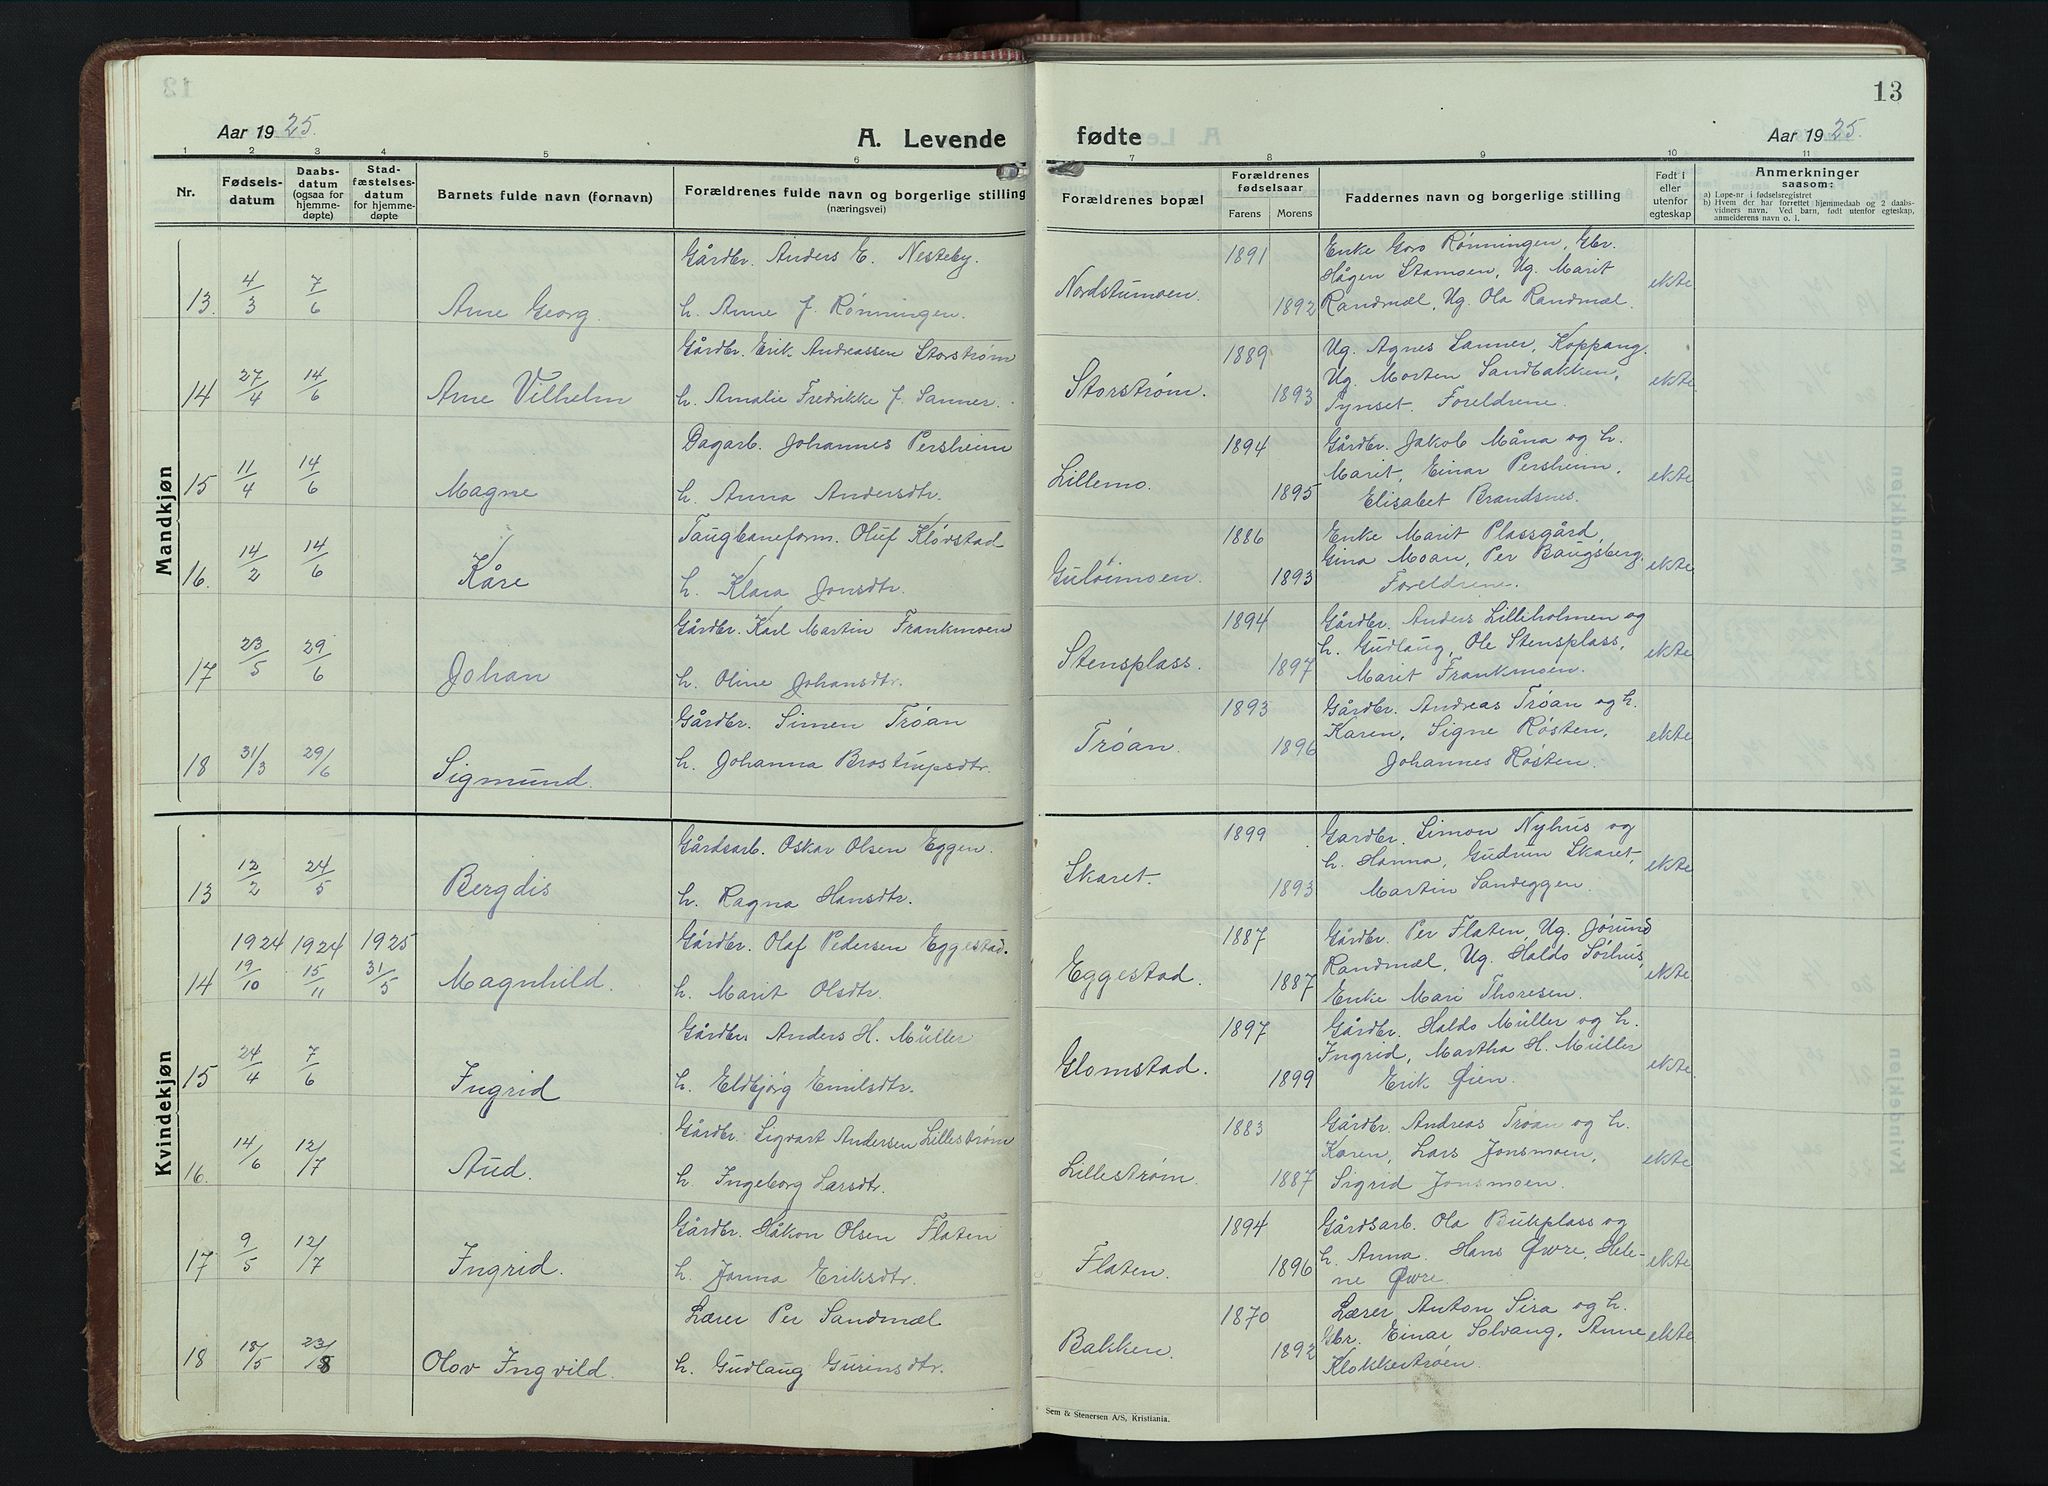 Aar 1925.
A. Levende
1 2 3 4 5 6
Nr.
Fødsels-
datum
Daabs-
datum
(ogsaa for
hjemme-
døpte)
Stad-
fæstelses-
datum
for hjemme-
døpte
Barnets fulde navn (fornavn)
Forældrenes fulde navn og borgerlige stilling
(næringsvei)
Mandkjøn
Gårdbr. Anders E. Nesteby.
13. 4/3 7/6 Arne Georg. h. Anne J. Rønningen.
Gårdbr. Erik Andreassen Storstrøm
14 27/4 14/6 Arne Vilhelm h. Amalie Fredrikke J. Sanner.
Dagarb. Johannes Persheim
15 11/4 14/6 Magne h. Anna Andersdtr.
Taugbaneform. Oluf Kløvstad
16. 14/2 14/6 Kåre h. Klara Jonsdtr.
Gårdbr. Karl Martin Frankmoen
17 23/5 29/6 Johan h. Oline Johansdtr.
Gårdbr. Simen Trøan
18 31/3 29/6 Sigmund. h. Johanna Brostrupsdtr.
Kvindekjøn
Gårdsarb. Oskar Olsen Eggen.
13 12/2 24/5 Bergdis h. Ragna Hansdtr.
1924 1924 1925 Gårdbr. Olaf Pedersen Eggestad.
14 19/10 15/11 31/5 Magnhild. h. Marit Olsdtr.
Gårdbr. Anders H. Müller
15 24/4 7/6 Ingrid h. Eldbjørg Emilsdtr.
Gårdbr. Sigvart Andersen Lillestrøm
16. 14/6 12/7 Aud. h. Ingeborg Larsdtr.
Gårdbr. Håkon Olsen Flaten
17 9/5 12/7 Ingrid. h. Jonna Eriksdtr.
Lærer Per Sandmæl
18 18/5 23/8 Olov Ingvild. h. Gudlaug Gurinsdtr.
13
fødte
Aar 1925.
7 8 9 10 11
Forældrenes bopæl
Forældrenes
fødselsaar
Farens Morens
Faddernes navn og borgerlige stilling
Født i
eller
utenfor
egteskap
Anmerkninger
saasom:
a) Løpe-nr i fødselsregistret
b) Hvem der har forrettet hjemmedaab og 2 daabs-
vidners navn. Ved barn, født utenfor egteskap,
anmelderens navn o. l.
1891 Enke Goro Rønningen, Gbr.
Nordstumoen. Hågen Stamoen, Ug. Marit ekte
1892 Randmæl, Ug. Ola Randmæl.
1889 Ug. Agnes Sanner, Koppang.
Storstrøm. 1893 Ug. Morten Sandbakken, ekte
Tynset. Foreldrene.
1894 Gårdbr. Jakob Måna og h.
Lillemo. Marit, Einar Persheim, ekte
1895 Elisabet Brandsnes.
1886 Enke Marit Plassgård,
Guløimoen. Gina Moan, Per Baugsberg. ekte
1893 Foreldrene.
1894 Gårdbr. Anders Lilleholmen og
Stensplass. h. Gudlaug, Ole Stensplass, ekte
1897 Marit Frankmoen.
1893 Gårdbr. Andreas Trøan og h.
Trøan. Karen, Signe Røsten, ekte
1896 Johannes Røsten.
1899 Gardbr. Simon Nyhus og
Skaret. h. Hanna, Gudrun Skaret, ekte
1893 Martin Sandeggen.
1887 Gårdbr. Per Flaten, Ug. Jørund
Eggestad. Randmæl, Ug. Haldo Sørhus, ekte
1887 Enke Mari Thoresen.
1897 Gårdbr. Haldo Müller og h.
Glomstad. Ingrid, Martha H. Müller ekte.
1899 Erik Øien.
1883 Gårdbr. Andreas Trøan og h.
Lillestrøm. Karen, Lars Jonsmoen, ekte
1887 Sigrid Jonsmoen.
1894 Gårdsarb. Ola Bukplass og
Flaten. 1896 h. Anna. Hans Øvre, Hele- ekte
ne Øvre.
1870 Lærer Anton Sira og h.
Bakken. 1892 Gbr. Einar Solvang, Anne ekte
Klokkertrøen.
Sem & Stenersen A/S, Kristiania.